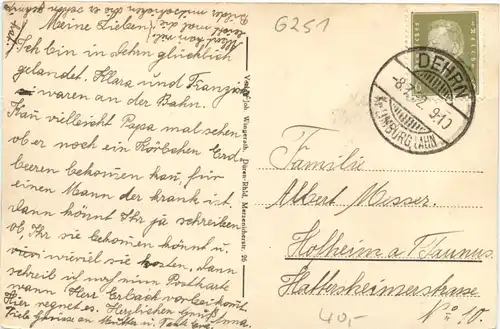 Meine Lieben!
Ich bin in Dehrn glücklich
gelandet. Klara und Franziska
waren an der Bahn.
Kan vielleicht Papa mal sehen
ob er noch ein Körbchen Erd-
beeren bekomen kan, für
einen Mann der krank ist,
dann könnt Ihr ja schreiben
ob Ihr sie bekomen könnt u.
wieviel sie kosten, dann
schreib ich auf einer Postkarte
wann Herr Erbach vorbei komt.
Hier regnet es. Herzlichen Gruß, Anna.
Viele Grüsse an Mutter u. Tante
Verlag Joh. Wingerath, Düren-Rhld, Merzenicherstr. 26
6251
DEHRN
9-10
LIMBURG (LAHN)
Familie
Albert Messer.
Hofheim a/Taunus.
Hattersheimerstrasse
No 10.
40,-